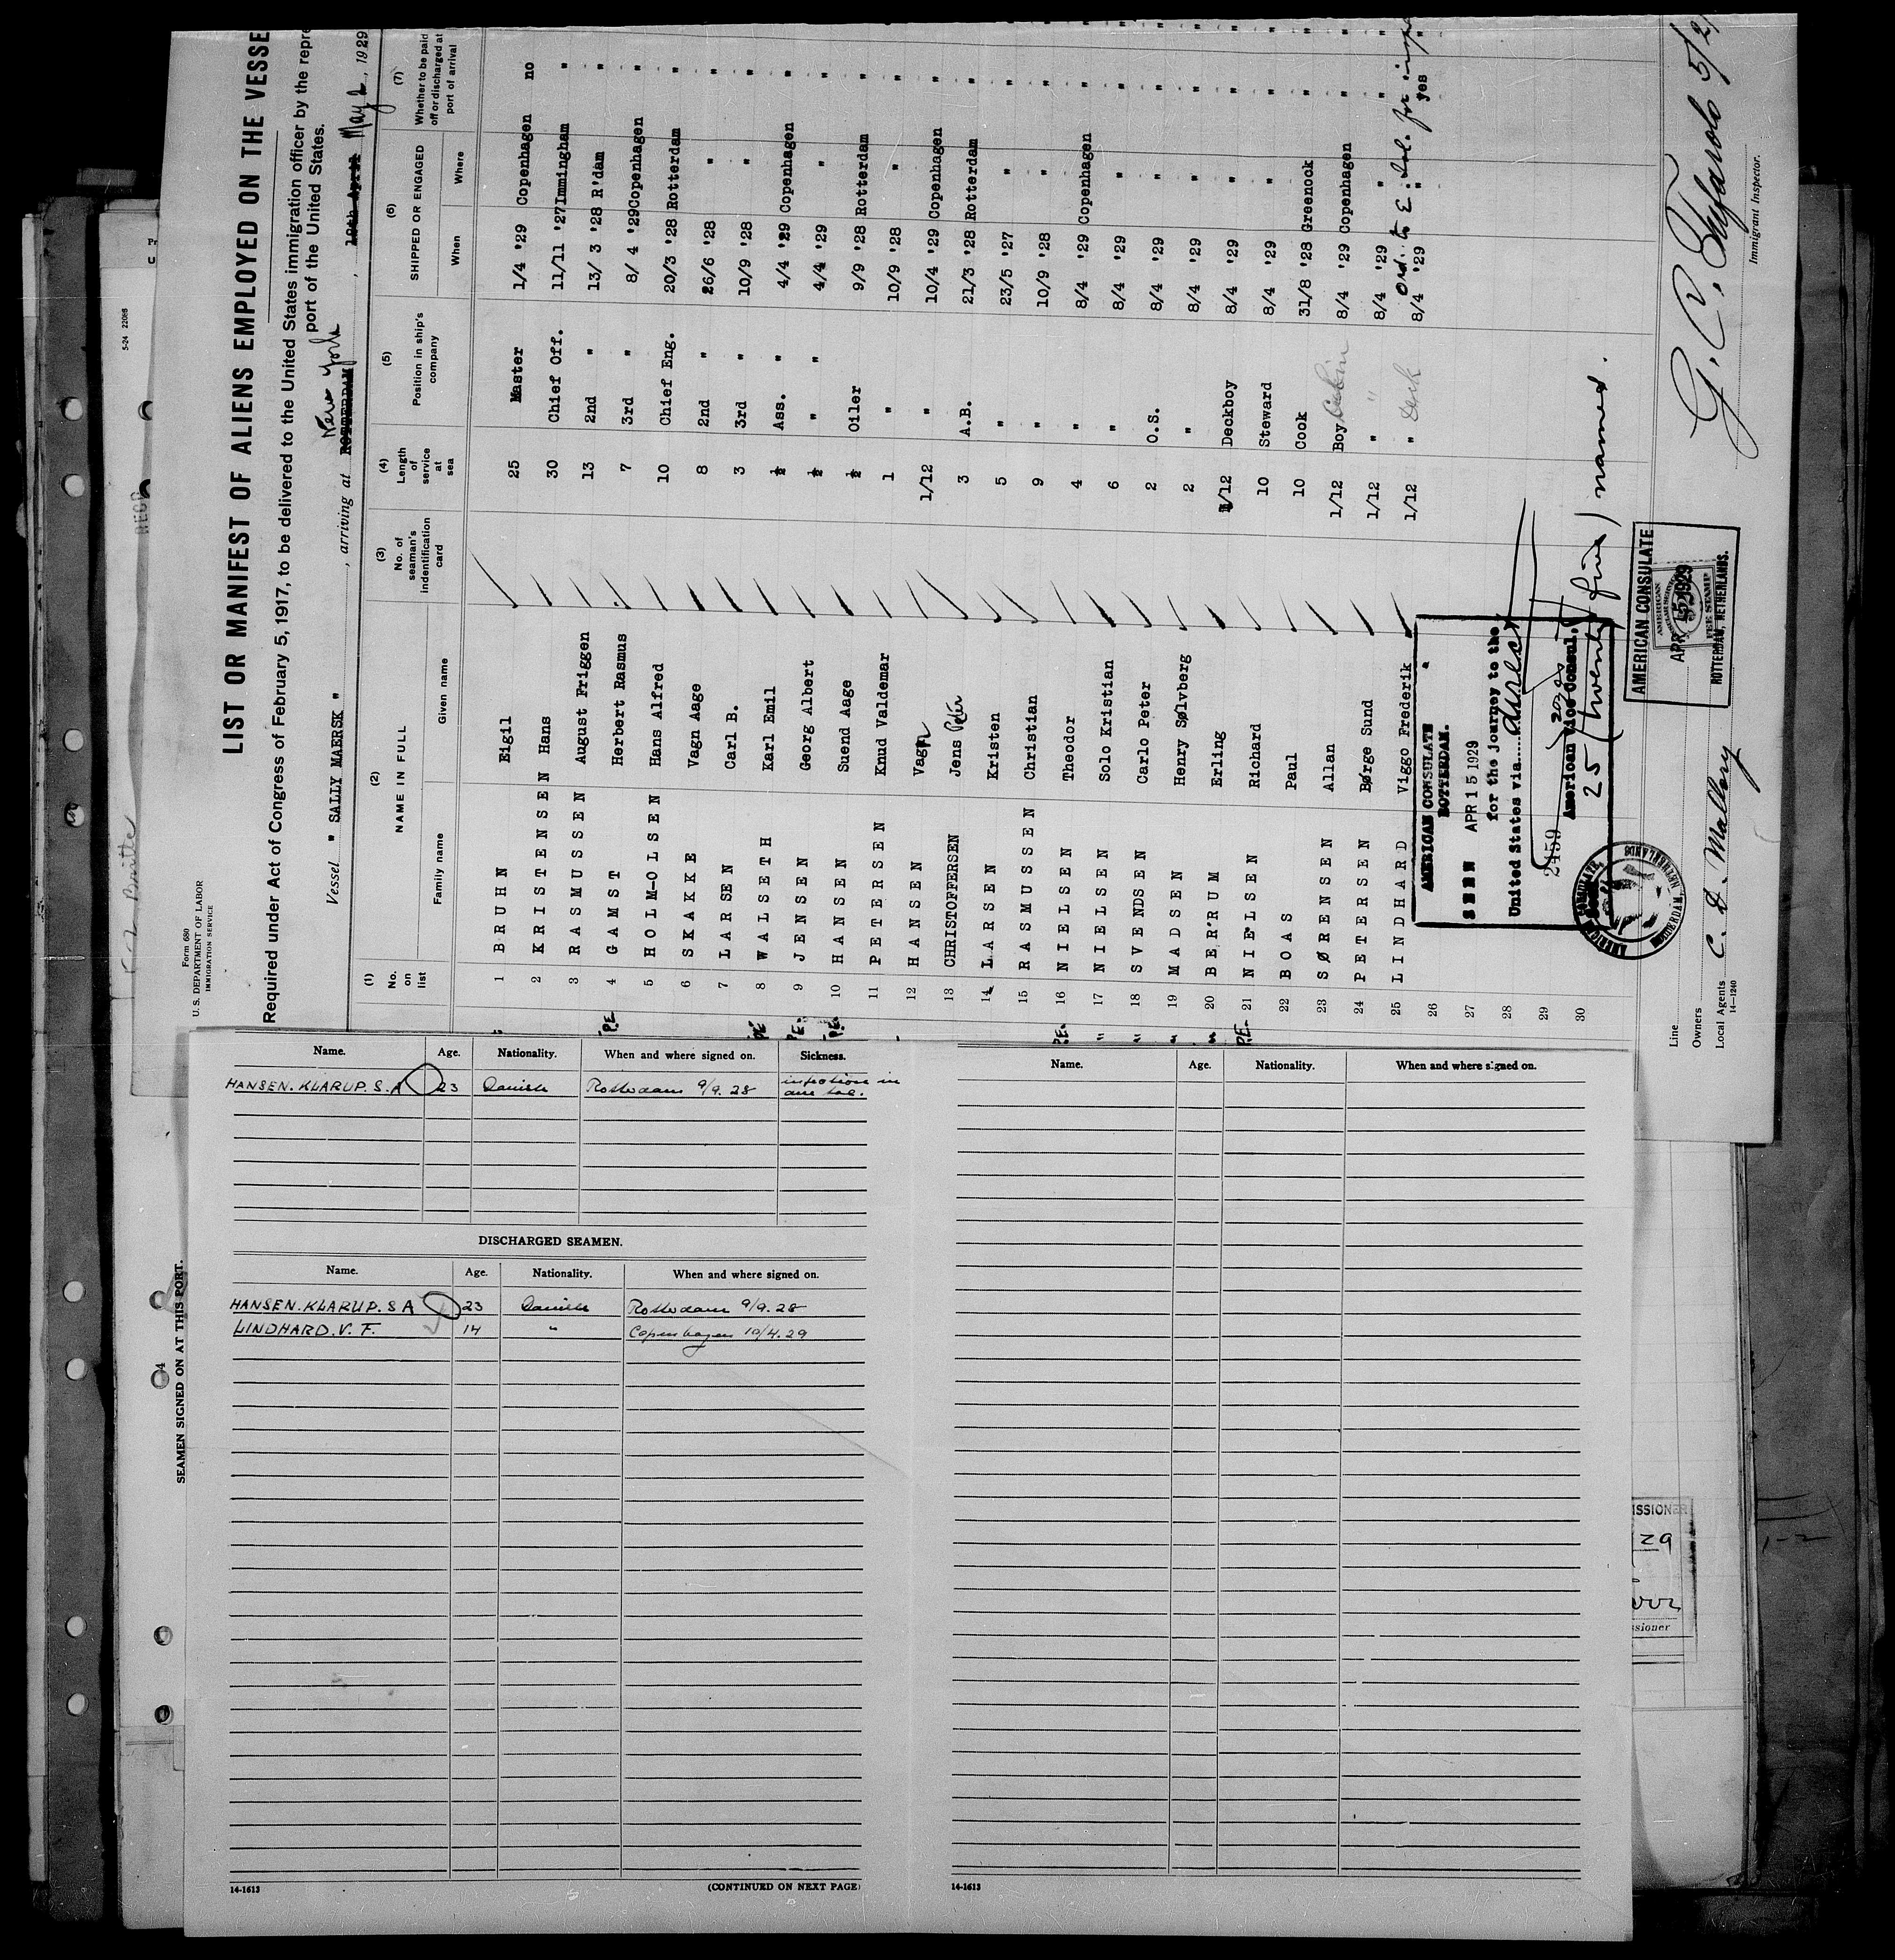 Form 680
U. S. DEPARTMENT OF LABOR
IMMIGRATION SERVICE
LIST OR MANIFEST OF ALIENS EMPLOYED ON THE VESSE
Required under Act of Congress of February 5, 1917, to be delivered to the United States immigration officer by the repre
port of the United States.
Vessel " SALLY MAERSK ", arriving at ROTTERDAM New York, 19th April May 2, 1929
(1) (2) (3) (4) (5) (6) (7)
No. on list
NAME IN FULL
Family name Given name
No. of seaman's indentification card
Length of service at sea
Position in ship's company
SHIPPED OR ENGAGED
When Where
Whether to be paid off or discharged at port of arrival
1 BRUHN Eigil 25 Master 1/4 '29 Copenhagen no
2 KRISTENSEN Hans 30 Chief Off. 11/11 '27 Immingham "
3 RASMUSSEN August Friggen 13 2nd " 13/ 3 '28 R'dam "
4 GAMST Herbert Rasmus 7 3rd " 8/ 4 '29 Copenhagen "
5 HOLM-OLSEN Hans Alfred 10 Chief Eng. 20/3 '28 Rotterdam "
6 SKAKKE Vagn Aage 8 2nd " 26/6 '28 " "
7 LARSEN Carl B. 3 3rd " 10/9 '28 " "
8 WALSETH Karl Emil ½ Ass. " 4/4 '29 Copenhagen "
9 JENSEN Georg Albert ½ " " 4/4 '29 " "
10 HANSEN Suend Aage ½ Oiler 9/9 '28 Rotterdam "
11 PETERSEN Knud Valdemar 1 " 10/9 '28 " "
12 HANSEN Vagn 1/12 " 10/4 '29 Copenhagen "
13 CHRISTOFFERSEN Jens Peter 3 A.B. 21/3 '28 Rotterdam "
14 LARSEN Kristen 5 " 23/5 '27 " "
15 RASMUSSEN Christian 9 " 10/9 '28 " "
16 NIELSEN Theodor 4 " 8/4 '29 Copenhagen "
17 NIELSEN Solo Kristian 6 " 8/4 '29 " "
18 SVENDSEN Carlo Peter 2 O.S. 8/4 '29 " "
19 MADSEN Henry Sølvberg 2 " 8/4 '29 " "
20 BERTRUM Erling 1/12 Deckboy 8/4 '29 " "
21 NIELSEN Richard 10 Steward 8/4 '29 " "
22 BOAS Paul 10 Cook 31/8 '28 Greenock "
23 SØRENSEN Allan 1/12 Boy Cabin 8/4 '29 Copenhagen "
24 PETERSEN Børge Sund 1/12 " " 8/4 '29 " "
25 LINDHARD Viggo Frederik 1/12 " Deck 8/4 '29 " yes
Ord. to E. Isl. for
26
27
28
29
30
AMERICAN CONSULATE
ROTTERDAM.
SEEN APR 15 1929
for the journey to the
United States via direct
2459
American Vice Consul,
25 (twenty five) names.
AMERICAN CONSULATE
APR 15 1929
FEE STAMP
ROTTERDAM, NETHERLANDS.
Line
Owners
Local Agents C. D. Mallory
14—1240
Immigrant Inspector.
SEAMEN SIGNED ON AT THIS PORT.
Name. Age. Nationality. When and where signed on. Sickness.
HANSEN. KLARUP. S. A 23 Danish Rotterdam 9/9. 28 infection in
DISCHARGED SEAMEN.
Name. Age. Nationality. When and where signed on.
HANSEN. KLARUP. S A 23 Danish Rotterdam 9/9. 28
LINDHARD. V. F. 14 " Copenhagen 10/4. 29
14-1613
(CONTINUED ON NEXT PAGE)
Name. Age. Nationality. When and where signed on.
14-1613